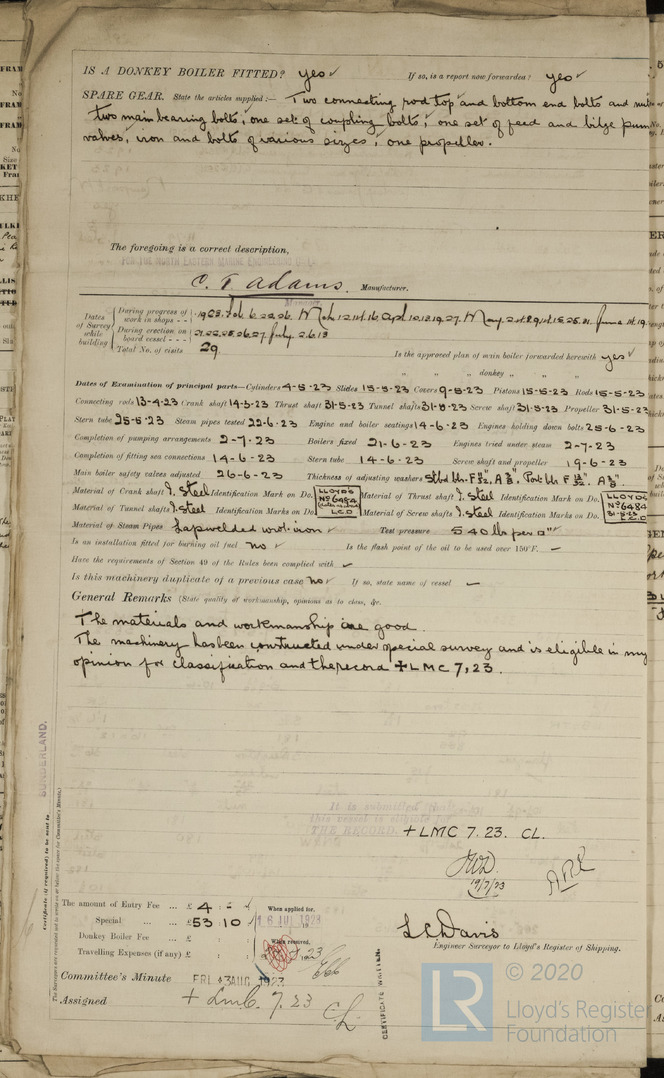 IS A DONKEY BOILER FITTED? yes ✓ If so, is a report now forwarded? yes ✓
SPARE GEAR. State the articles supplied:— Two connecting rod top and bottom end bolts and
two main bearing bolts, one set of coupling bolts, one set of feed and bilge pum
valves, iron and bolts of various sizes, one propeller.
The foregoing is a correct description,
FOR THE NORTH EASTERN MARINE ENGINEERING
C. T. Adams. Manufacturer.
Manager.
Dates of Survey while building
During progress of work in shops - - 1923. Feb. 6. 22. 26. Mch. 12. 14. 16. Apl. 10. 12. 19. 27. May. 15. 25. 31. June 14. 19.
During erection on board vessel - - - 21. 22. 25. 26. 27. July. 2. 6. 13
Total No. of visits 29. Is the approved plan of main boiler forwarded herewith yes ✓
" " " donkey " " "
Dates of Examination of principal parts—Cylinders 4-5-23 Slides 15-5-23 Covers 9-5-23 Pistons 15-5-23 Rods 15-5-23
Connecting rods 13-4-23 Crank shaft 14-3-23 Thrust shaft 31-5-23 Tunnel shafts 31-5-23 Screw shaft 31-5-23 Propeller 31-5-23
Stern tube 25-5-23 Steam pipes tested 22-6-23 Engine and boiler seatings 14-6-23 Engines holding down bolts 25-6-23
Completion of pumping arrangements 2-7-23 Boilers fixed 21-6-23 Engines tried under steam 2-7-23
Completion of fitting sea connections 14-6-23 Stern tube 14-6-23 Screw shaft and propeller 19-6-23
Main boiler safety valves adjusted 26-6-23 Thickness of adjusting washers
Material of Crank shaft I. Steel Identification Mark on Do. Material of Thrust shaft I. Steel Identification Mark on Do.
LLOYDS No 6484 L.C.D
LLOYDS No 6484 31-5-23 L.C.D
Material of Tunnel shafts I. Steel Identification Marks on Do. Material of Screw shafts I. Steel Identification Marks on Do.
Material of Steam Pipes Lapwelded wrot. iron ✓ Test pressure 540 lbs per □"
Is an installation fitted for burning oil fuel no ✓ Is the flash point of the oil to be used over 150°F. —
Have the requirements of Section 49 of the Rules been complied with ✓
Is this machinery duplicate of a previous case no ✓ If so, state name of vessel —
General Remarks (State quality of workmanship, opinions as to class, &c.
The materials and workmanship are good.
The machinery has been constructed under special survey and is eligible in my
opinion for classification and the record + LMC 7,23.
SUNDERLAND.
It is submitted that
this vessel is eligible for
THE RECORD. + LMC 7. 23. CL.
19/7/23
The amount of Entry Fee ... £ 4 : - : When applied for,
Special ... ... £ 53 : 10 : 16 JUL 1923
Donkey Boiler Fee ... £
When received,
Travelling Expenses (if any) £
L C Davis
Engineer Surveyor to Lloyd's Register of Shipping.
Committee's Minute FRI. 3 AUG 1923
Assigned + LMC. 7. 23
CL
CERTIFICATE WRITTEN.
© 2020
LR Lloyd's Register
Foundation